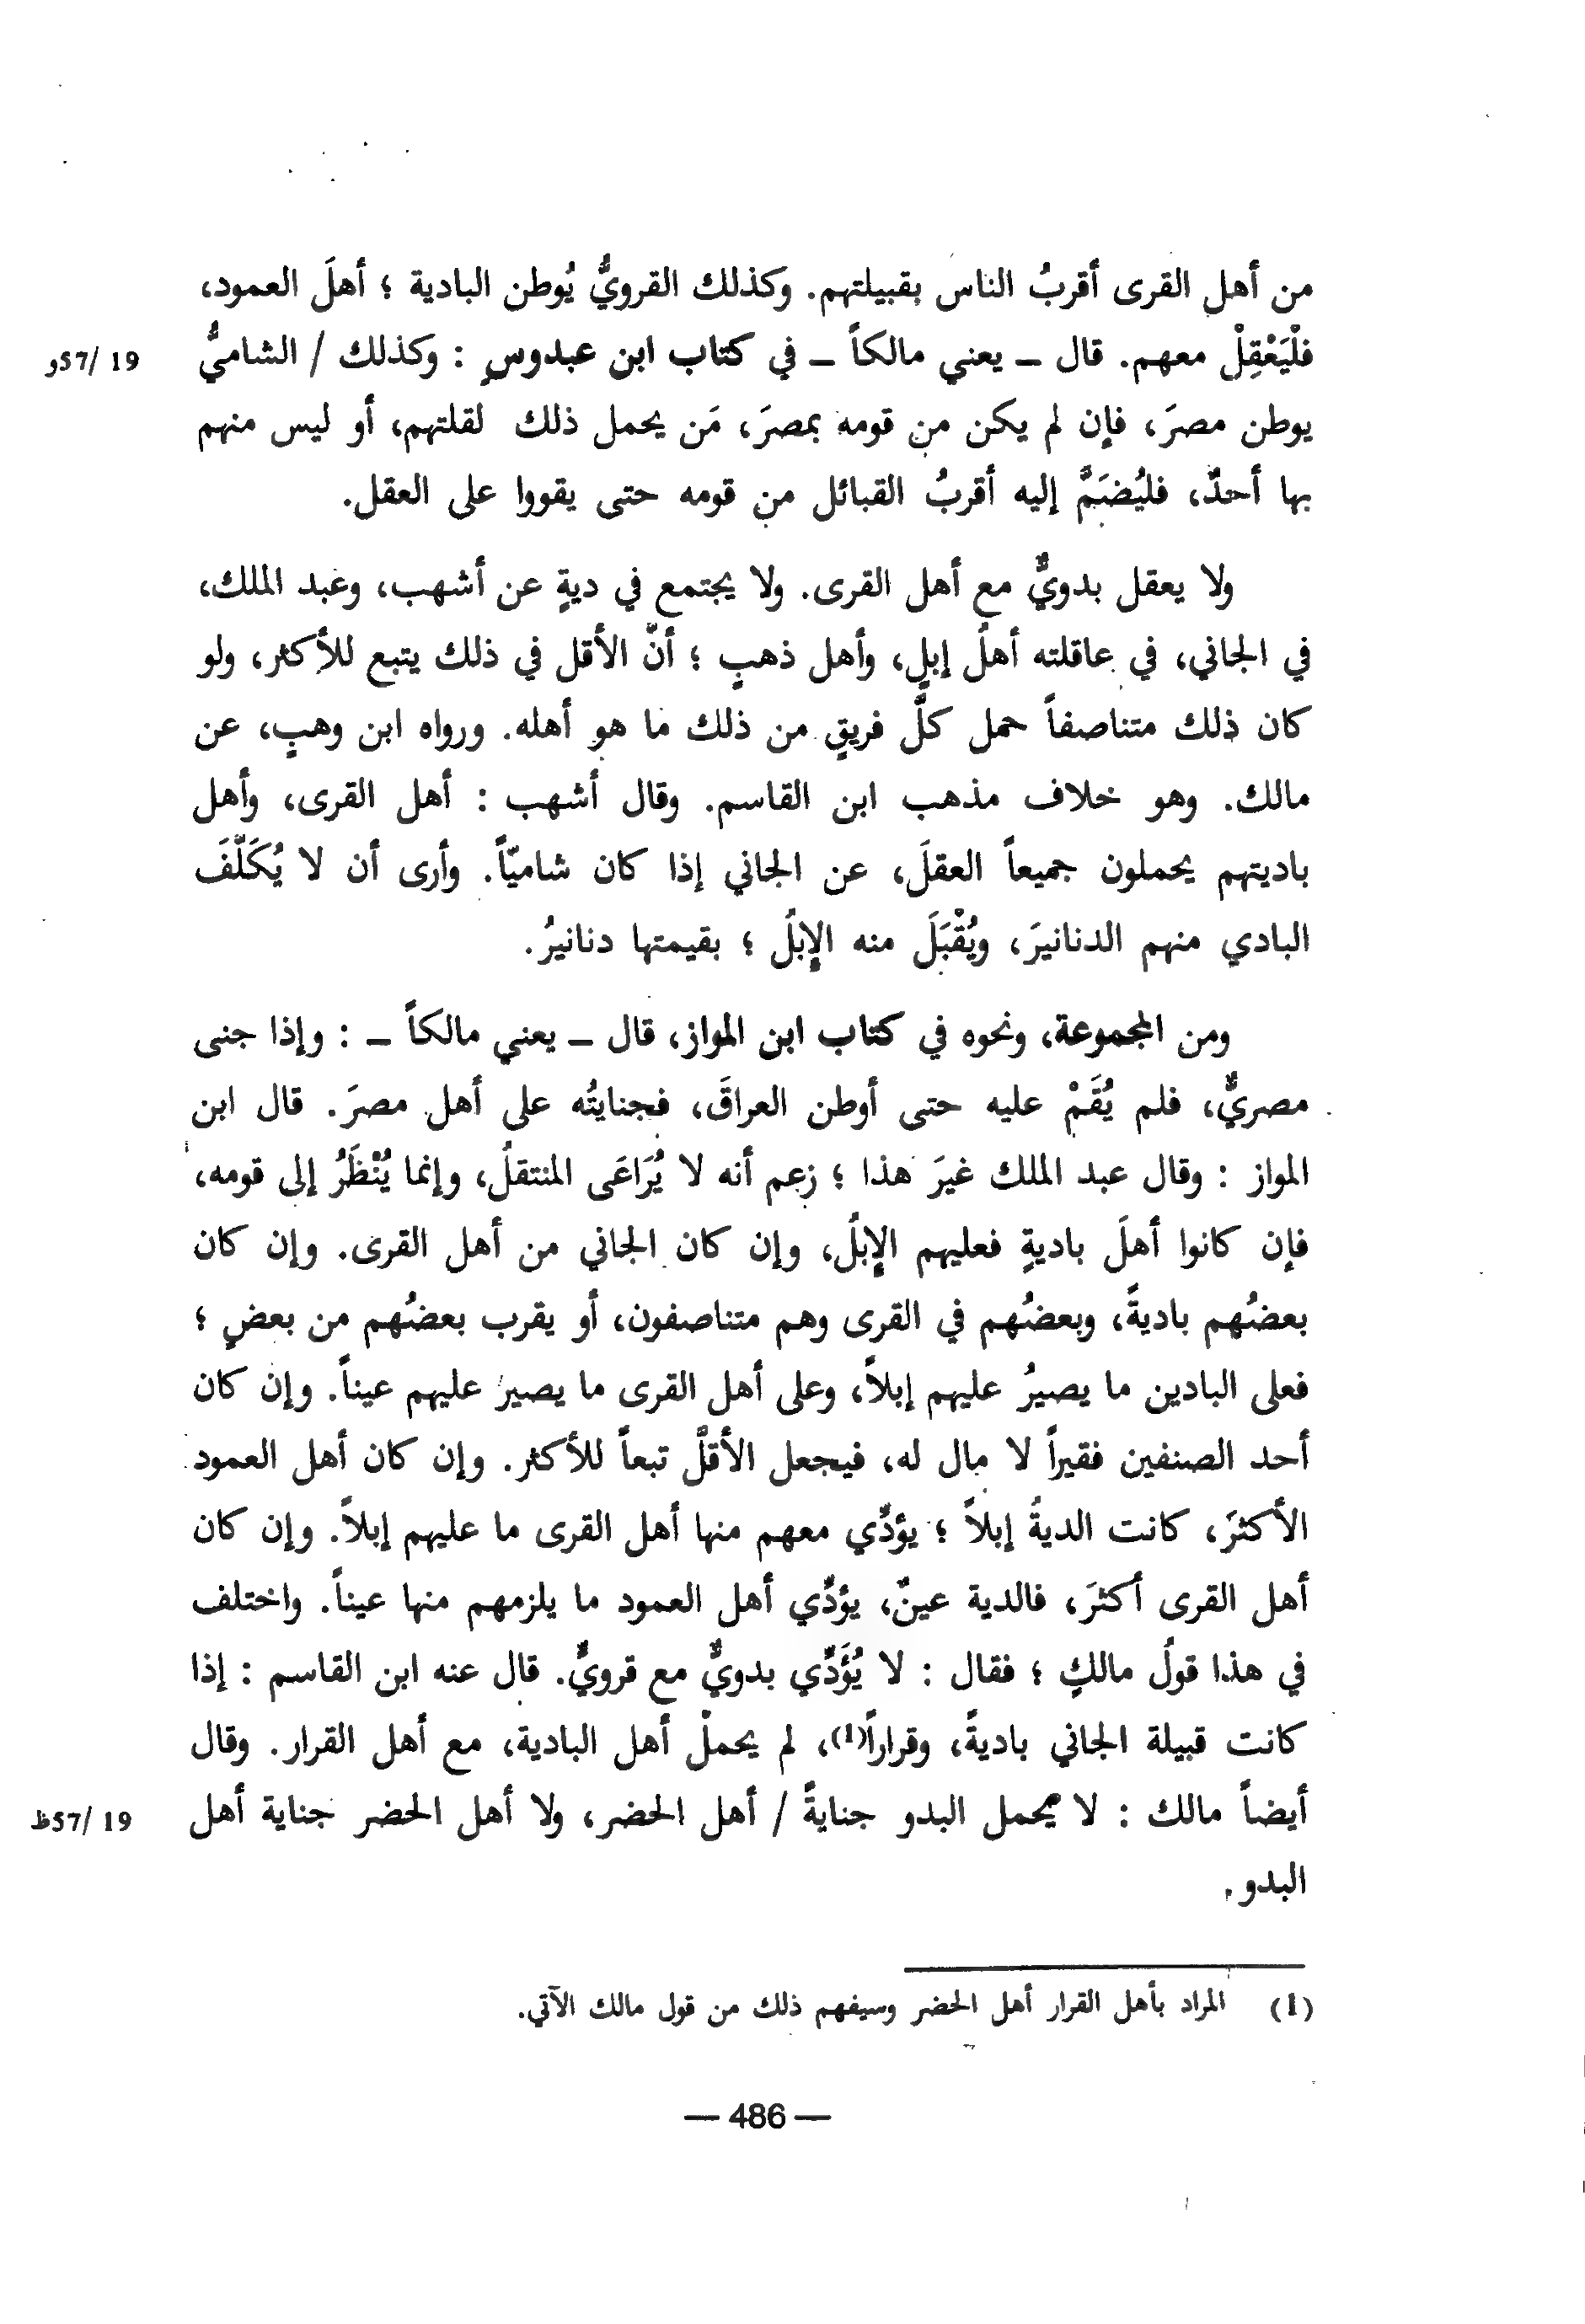 من أهل القرى أقربُ الناس بقبيلتهم. وكذلك القرويُّ يُوطن البادية ؛ أهلَ العمود،
فلْيَعْقِلْ معهم. قال – يعني مالكاً – في كتاب ابن عبدوسٍ : وكذلك / الشاميُّ
19 /57و
يوطن مصرَ، فإن لم يكن من قومه بمصرَ، مَن يحمل ذلك لقلتهم، أو ليس منهم
بها أحدٌ، فليُضَمَّ إليه أقربُ القبائل من قومه حتى يقووا على العقل.
ولا يعقل بدويٌّ مع أهل القرى. ولا يجتمع في ديةٍ عن أشهب، وعبد الملك،
في الجاني، في عاقلته أهلُ إبلٍ، وأهل ذهبٍ ؛ أنّ الأقل في ذلك يتبع للأكثر، ولو
كان ذلك متناصفاً حمل كلُّ فريقٍ من ذلك ما هو أهله. ورواه ابن وهبٍ، عن
مالك. وهو خلاف مذهب ابن القاسم. وقال أشهب : أهل القرى، وأهل
باديتهم يحملون جميعاً العقلَ، عن الجاني إذا كان شاميّاً. وأرى أن لا يُكَلَّفَ
البادي منهم الدنانيرَ، ويُقْبَلَ منه الإبلُ ؛ بقيمتها دنانيرُ.
ومن المجموعة، ونحوه في كتاب ابن المواز، قال – يعني مالكاً – : وإذا جنى
مصريٌّ، فلم يُقَمْ عليه حتى أوطن العراقَ، فجنايتُه على أهل مصرَ. قال ابن
المواز : وقال عبد الملك غيرَ هذا ؛ زعم أنه لا يُرَاعَى المنتقلُ، وإنما يُنْظَرُ إلى قومه،
فإن كانوا أهلَ باديةٍ فعليهم الإبلُ، وإن كان الجاني من أهل القرى. وإن كان
بعضُهم باديةً، وبعضُهم في القرى وهم متناصفون، أو يقرب بعضُهم من بعضٍ ؛
فعلى البادين ما يصيرُ عليهم إبلاً، وعلى أهل القرى ما يصير عليهم عيناً. وإن كان
أحد الصنفين فقيراً لا مال له، فيجعل الأقلُّ تبعاً للأكثر. وإن كان أهل العمود
الأكثرَ، كانت الديةُ إبلاً ؛ يؤدِّي معهم منها أهل القرى ما عليهم إبلاً. وإن كان
أهل القرى أكثرَ، فالدية عينٌ، يؤدِّي أهل العمود ما يلزمهم منها عيناً. واختلف
في هذا قولُ مالكٍ ؛ فقال : لا يُؤَدِّي بدويٌّ مع قرويٌّ. قال عنه ابن القاسم : إذا
كانت قبيلة الجاني باديةً، وقراراً(1)، لم يحملْ أهل البادية، مع أهل القرار. وقال
أيضاً مالك : لا يحمل البدو جنايةً / أهل الحضر، ولا أهل الحضر جناية أهل
19 /57ظ
البدو.
(1) المراد بأهل القرار أهل الحضر وسيفهم ذلك من قول مالك الآتي.
— 486 —